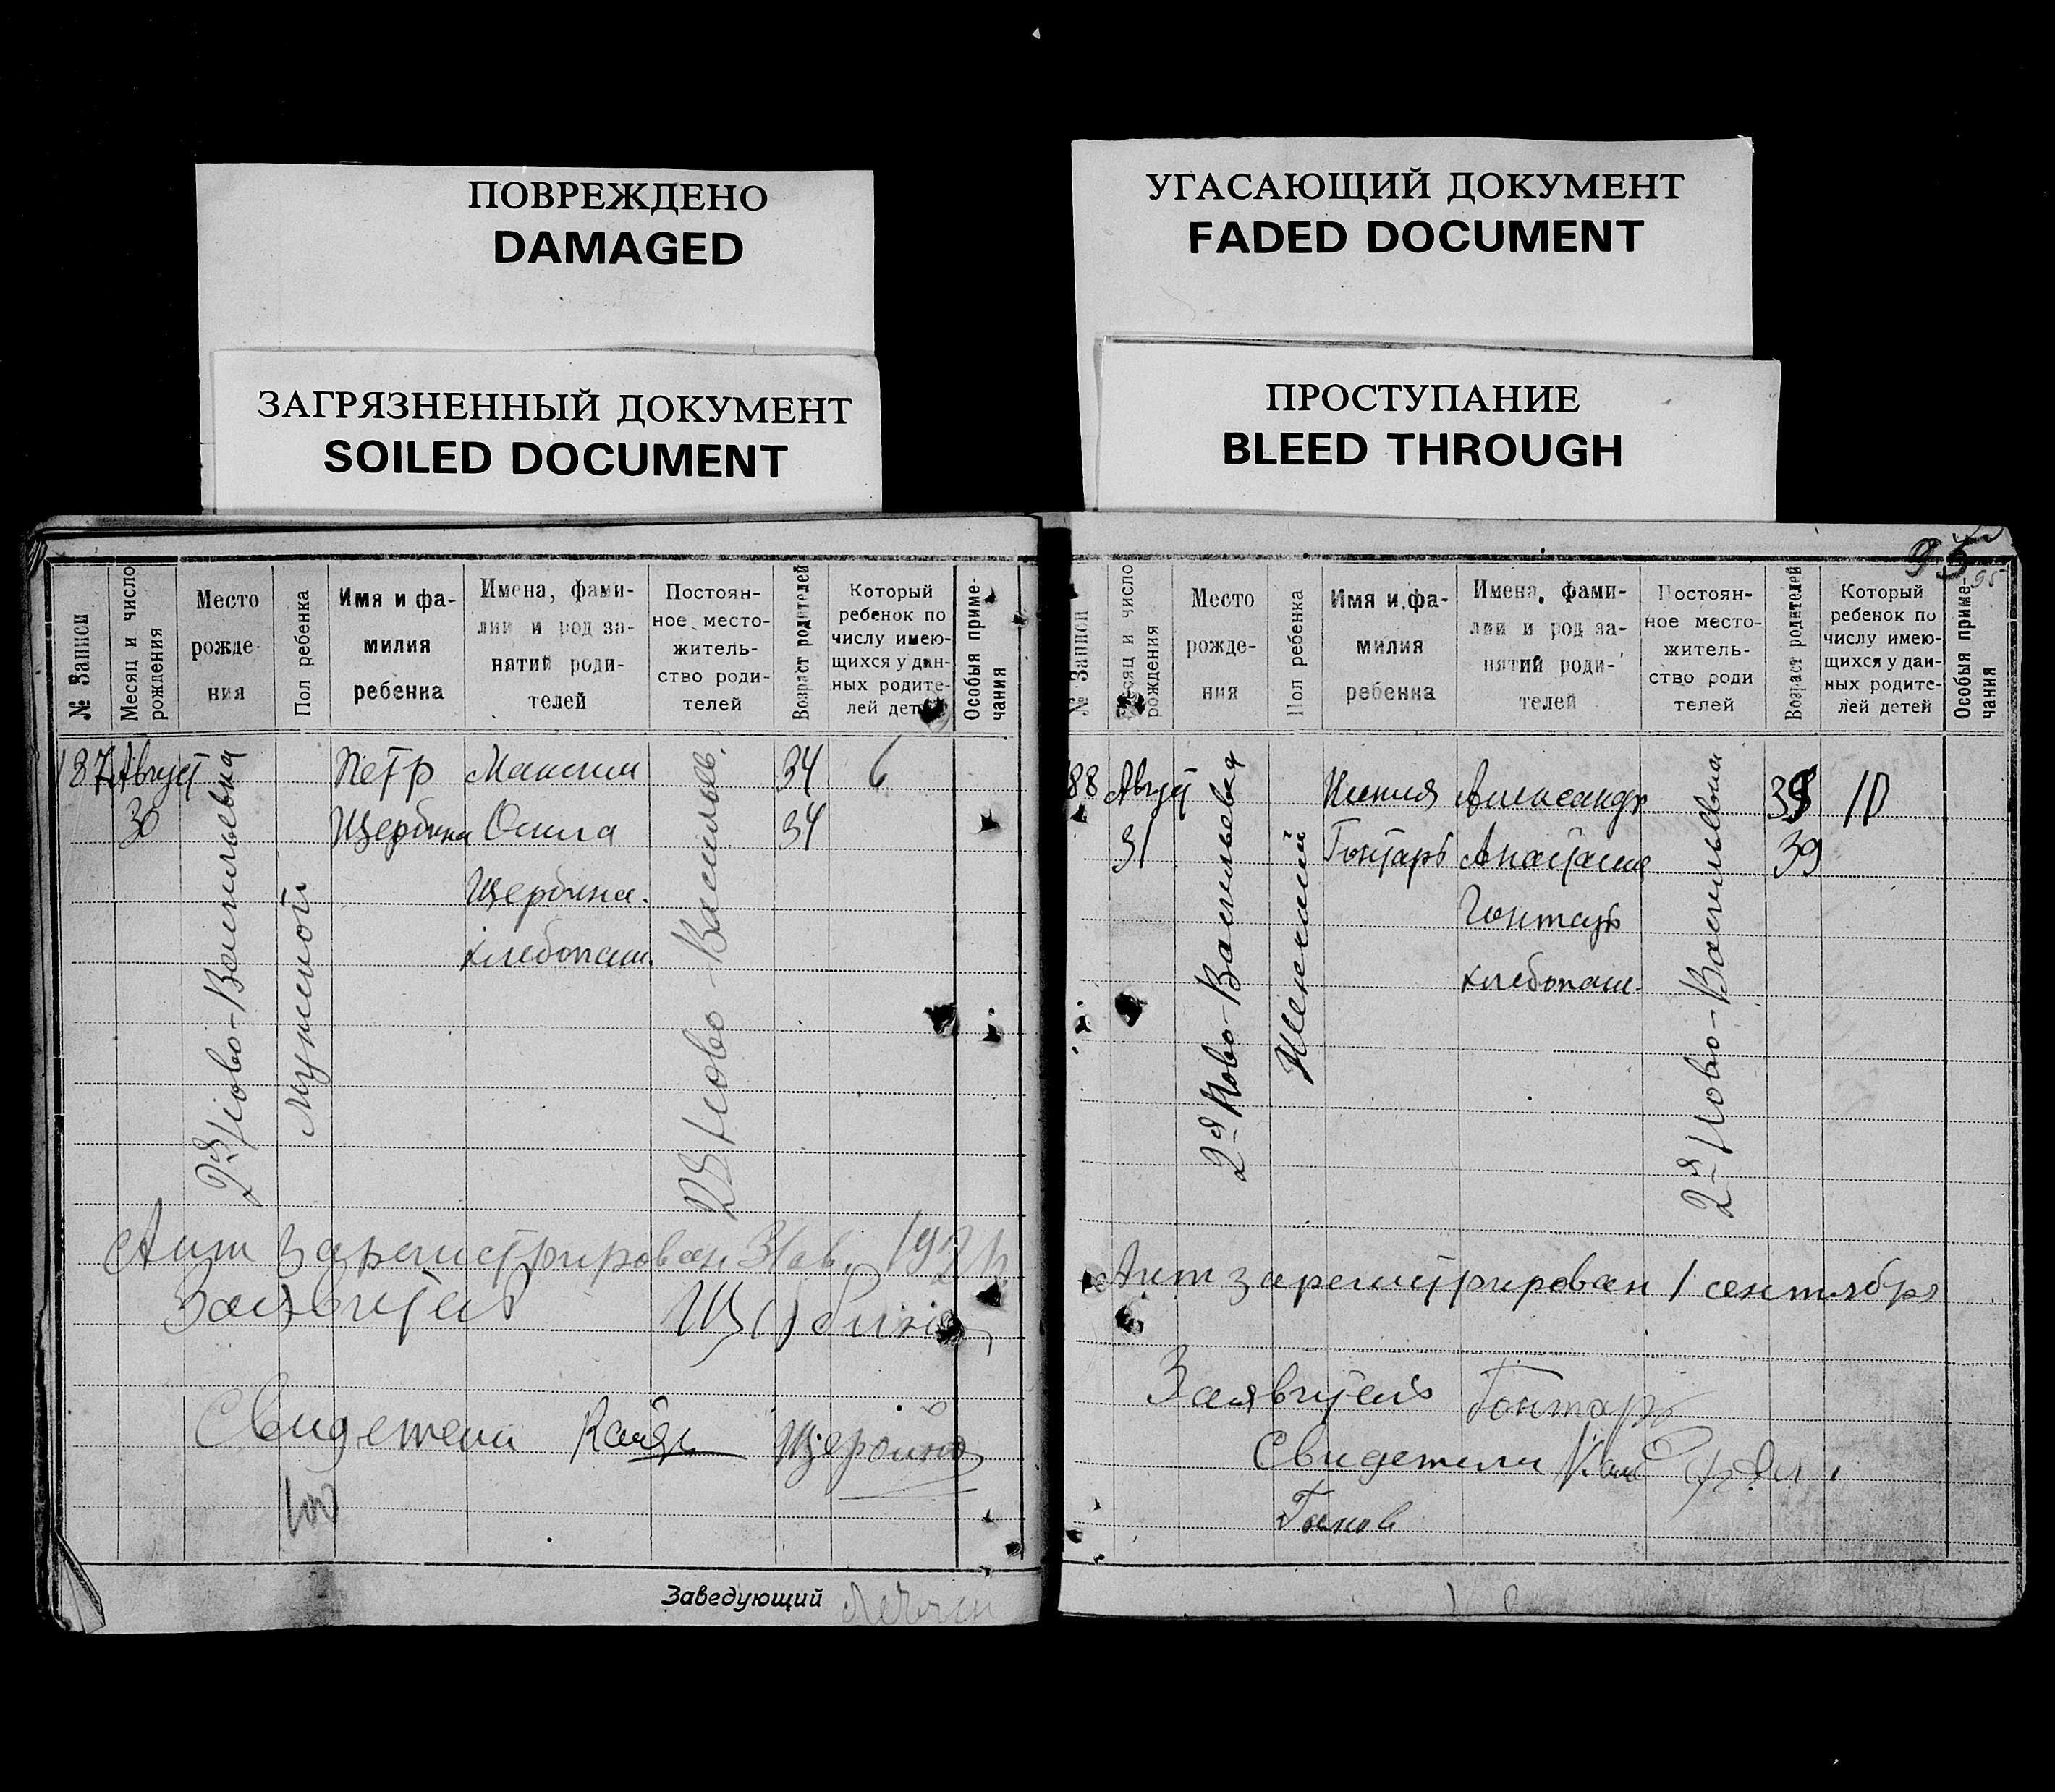 ПОВРЕЖДЕНО
DAMAGED
ЗАГРЯЗНЕННЫЙ ДОКУМЕНТ
SOILED DOCUMENT
УГАСАЮЩИЙ ДОКУМЕНТ
FADED DOCUMENT
ПРОСТУПАНИЕ
BLEED THROUGH
№ Записи
Месяц и число
рождения
Место
рожде-
ния
Пол ребенка
Имя и фа-
милия
ребенка
Имена, фами-
лии и род за-
нятий роди-
телей
Постоян-
ное место-
житель-
ство роди-
телей
Возраст родителей
Который
ребенок по
числу имею-
щихся у дан-
ных родите-
лей детей
Особыя приме-
чания
187 Август
30
2я Ново-Васильевка
Мужской
Петр
Щербина
Максим
Осипа
Щербина.
хлебопаш.
2я Ново-Василь.
34
34
6
Акт зарегистрирован 31 ав. 1924
Заявитель Щербина
Свидетели Щербина
100
Заведующий
95
95
№ Записи
Месяц и число
рождения
Место
рожде-
ния
Пол ребенка
Имя и фа-
милия
ребенка
Имена, фами-
лии и род за-
нятий роди-
телей
Постоян-
ное место-
житель-
ство роди
телей
Возраст родителей
Который
ребенок по
числу имею-
щихся у дан-
ных родите-
лей детей
Особыя приме-
чания
88 Август
31
2-я Ново-Васильевка
Женский
Ксения
Гонтарь
Александр
Анастасия
Гонтарь
хлебопаш.
2-я Ново-Васильевка
39
39
10
Акт зарегистрирован 1 сентябрь
Заявитель Гонтарь
Свидетели